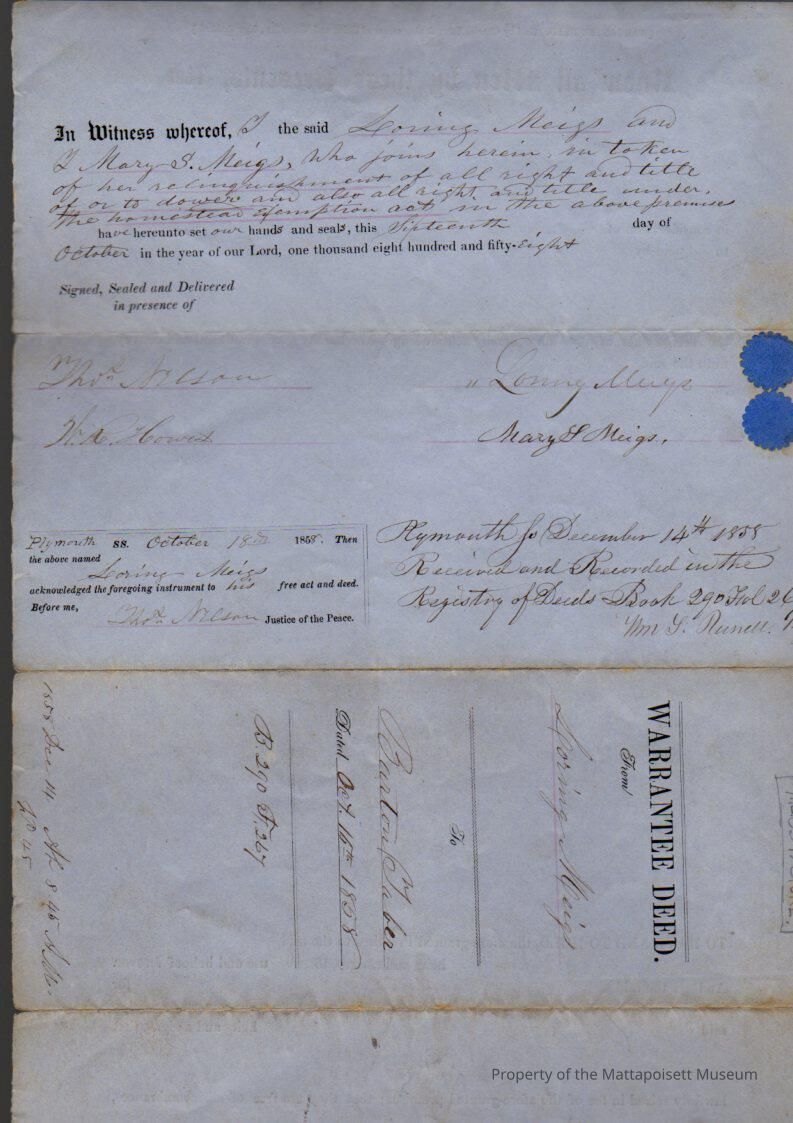 In Witness whereof, I the said Loring Meigs and
I Mary S. Meigs, who joins herein, in token
of her relinquishment of all right and title
of or to dower and also all right and title under
the homestead exemption act in the above premises
have hereunto set our hands and seals, this fifteenth day of
October in the year of our Lord, one thousand eight hundred and fifty-eight
Signed, Sealed and Delivered
in presence of
Thos. Nelson
Loring Meigs
Mary S Meigs.
Plymouth ss. October 18th 1858. Then
the above named
Loring Meigs
acknowledged the foregoing instrument to his free act and deed.
Before me,
Thos. Nelson Justice of the Peace.
Plymouth Ss December 14th 1858
Received and Recorded in the
Registry of Deeds Book 290 Fol 26
Wm S. Russell.
WARRANTEE DEED.
From
Loring Meigs
To
Barton Taber
Dated Oct. 15th 1858
B. 290 F. 267
1858 Dec 14 8.45 A.M.
Property of the Mattapoisett Museum